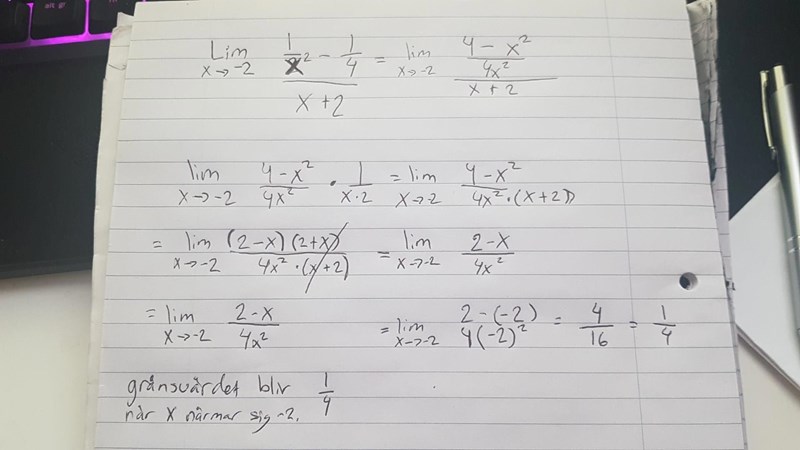 Lim x→-2 (1/x² - 1/4)/(x+2) = lim x→-2 ((4-x²)/(4x²))/(x+2)
lim x→-2 (4-x²)/(4x²) · 1/(x·2) = lim x→2 (4-x²)/(4x²·(x+2))
= lim x→-2 ((2-x)(2+x))/(4x²·(x+2)) = lim x→-2 (2-x)/(4x²)
= lim x→-2 (2-x)/(4x²) = lim x→-2 (2-(-2))/(4(-2)²) = 4/16 = 1/4
gränsvärdet blir 1/4
när x närmar sig -2.